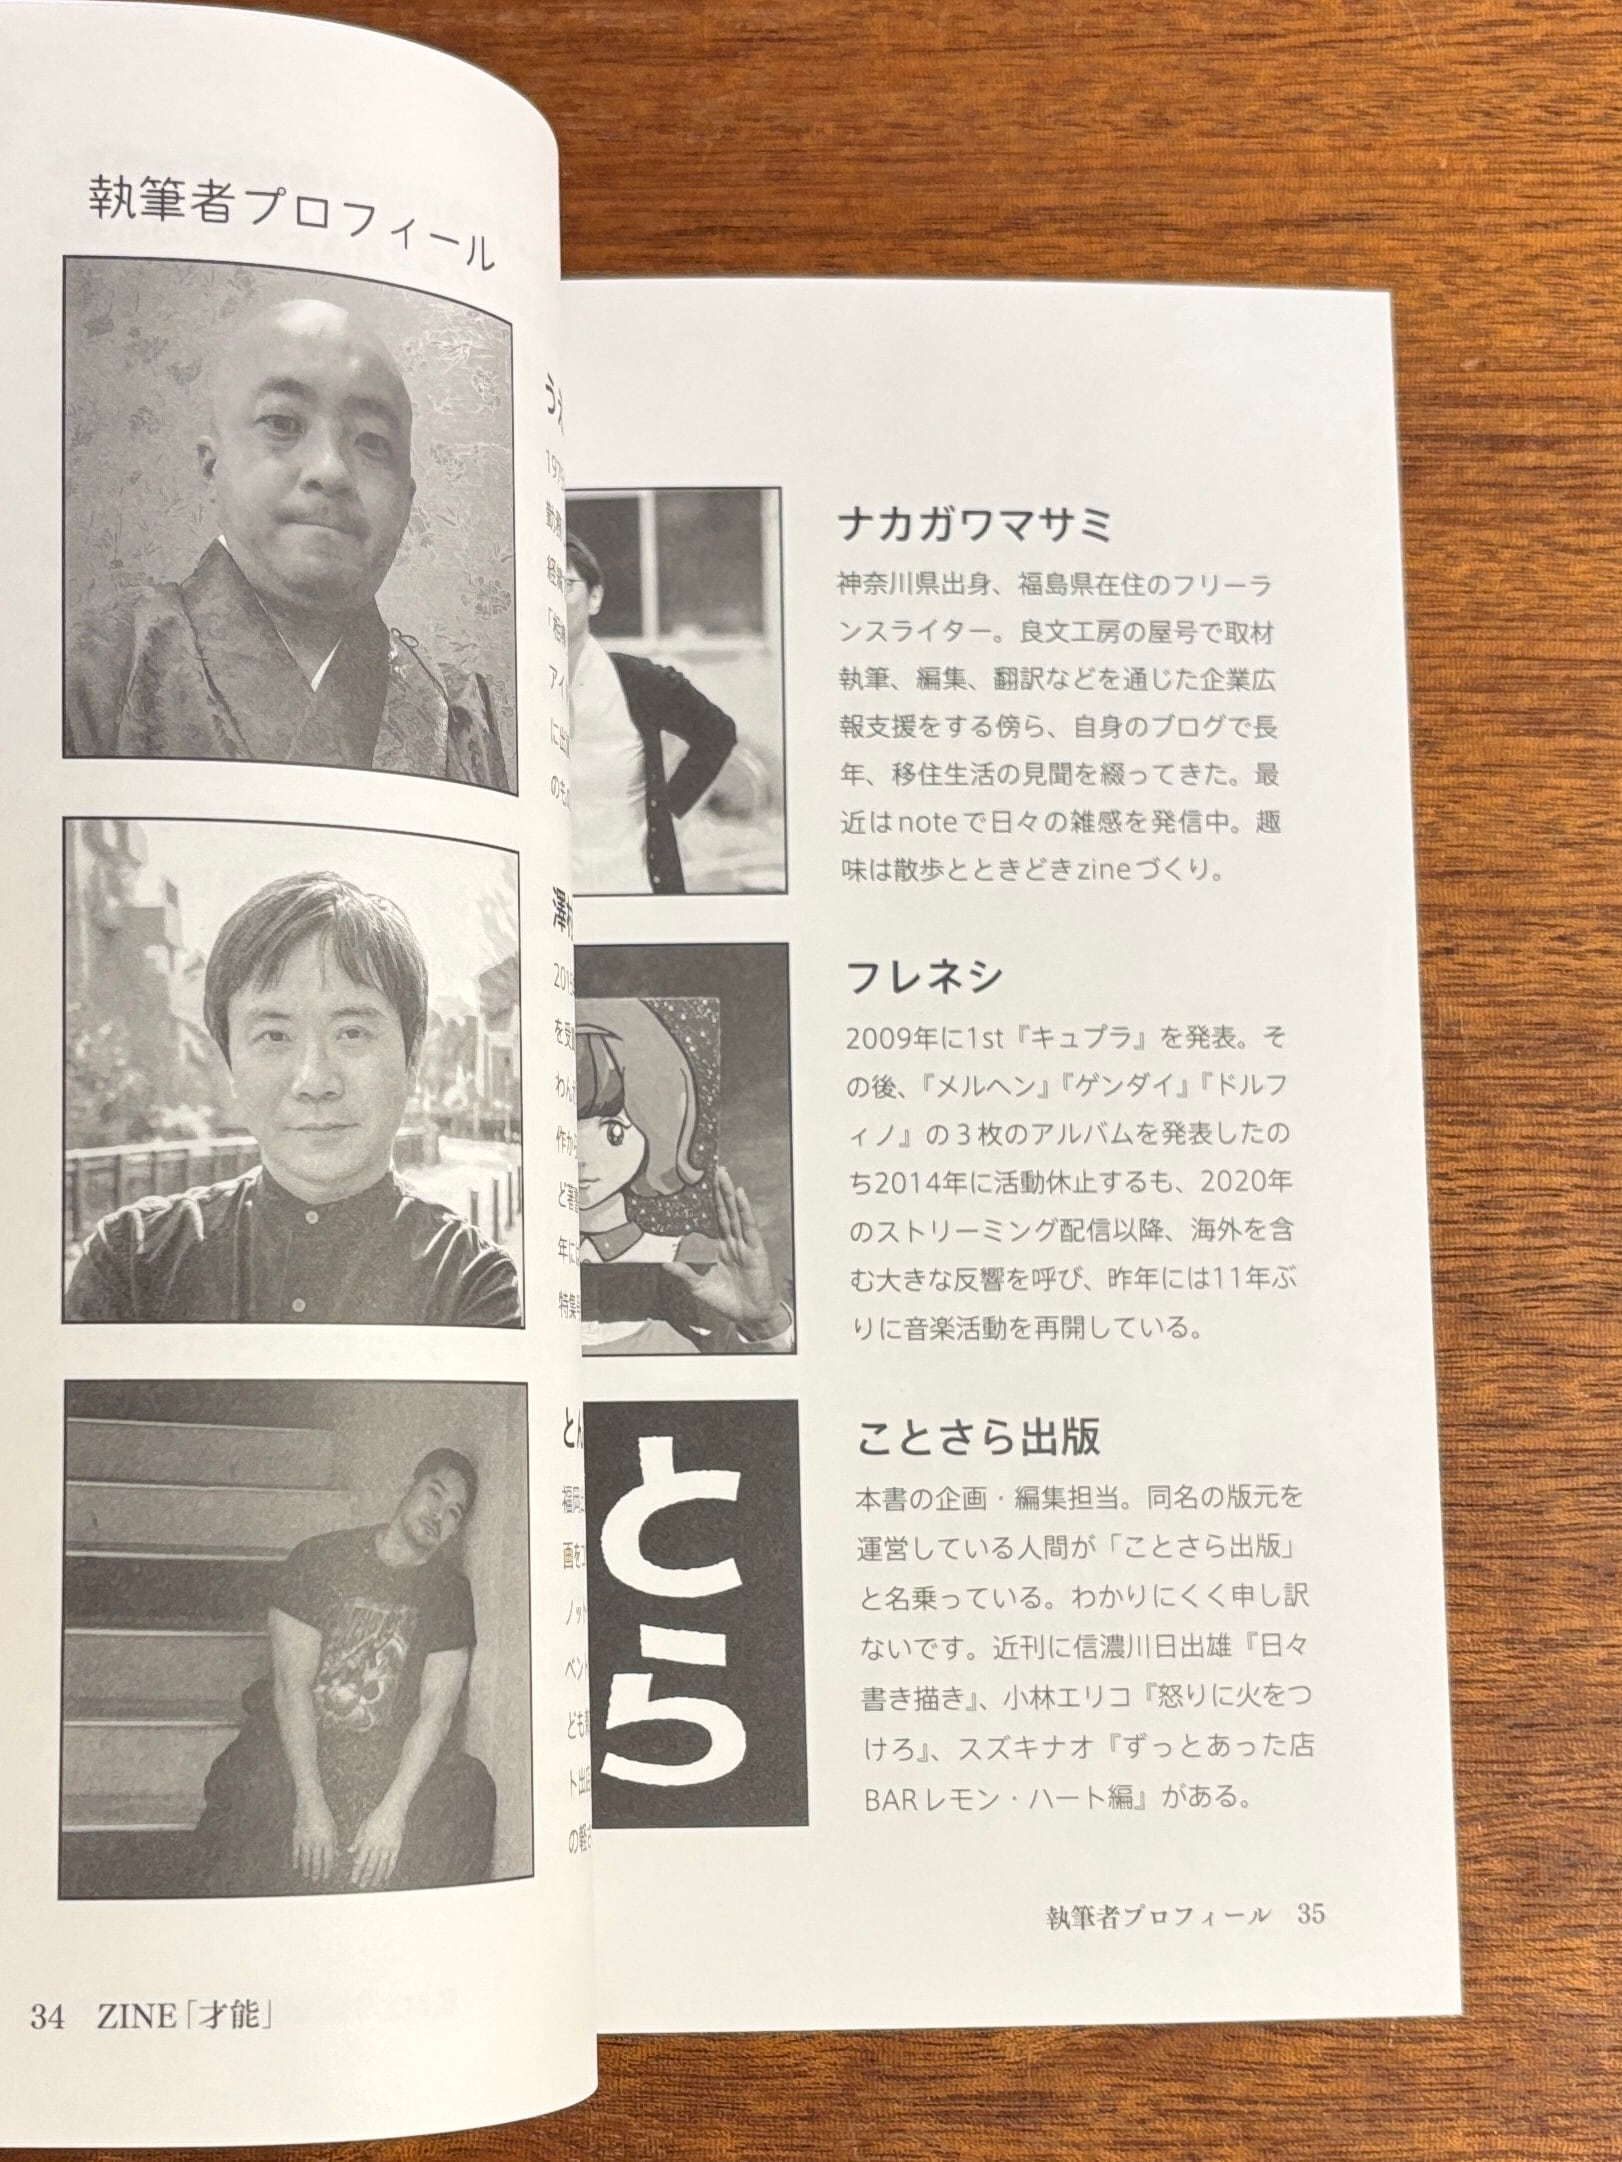 執筆者プロフィール
34 ZINE「才能」
ナカガワマサミ
神奈川県出身、福島県在住のフリーラ
ンスライター。良文工房の屋号で取材
執筆、編集、翻訳などを通じた企業広
報支援をする傍ら、自身のブログで長
年、移住生活の見聞を綴ってきた。最
近はnoteで日々の雑感を発信中。趣
味は散歩とときどきzineづくり。
フレネシ
2009年に1st『キュプラ』を発表。そ
の後、『メルヘン』『ゲンダイ』『ドルフ
ィノ』の3枚のアルバムを発表したの
ち2014年に活動休止するも、2020年
のストリーミング配信以降、海外を含
む大きな反響を呼び、昨年には11年ぶ
りに音楽活動を再開している。
とら
ことさら出版
本書の企画・編集担当。同名の版元を
運営している人間が「ことさら出版」
と名乗っている。わかりにくく申し訳
ないです。近刊に信濃川日出雄『日々
書き描き』、小林エリコ『怒りに火をつ
けろ』、スズキナオ『ずっとあった店
BARレモン・ハート編』がある。
執筆者プロフィール 35